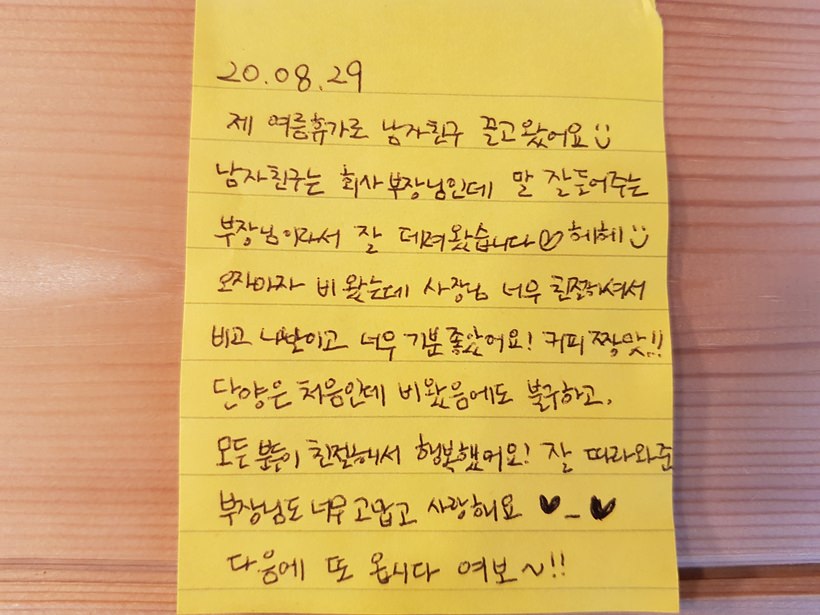 20.08.29
제 여름휴가로 남자친구 끌고왔어요
남자친구는 회사 부장님인데 말 잘들어주는
부장님이라서 잘 데려왔습니다 헤헤
오자마자 비 왔는데 사장님 너무 친절하셔서
비고 나발이고 너무 기분좋았어요! 커피 짱맛!!
단양은 처음인데 비왔음에도 불구하고,
모든 분들이 친절해서 행복했어요! 잘 따라와준
부장님도 너무 고맙고 사랑해요 ♥_♥
다음에 또 옵시다 여보~!!